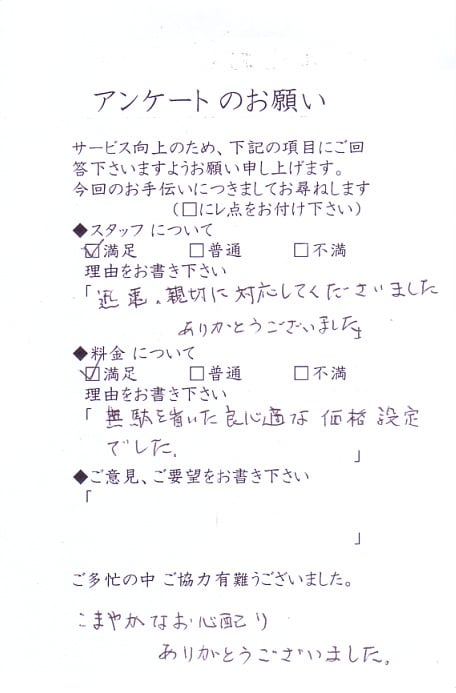 アンケートのお願い
サービス向上のため、下記の項目にご回
答下さいますようお願い申し上げます。
今回のお手伝いにつきましてお尋ねします
(□にレ点をお付け下さい)
◆スタッフ について
☑満足 □普通 □不満
理由をお書き下さい
「 迅速、親切に対応してくださいました
ありがとうございました」
◆料金 について
☑満足 □普通 □不満
理由をお書き下さい
「 無駄を省いた良心適な 価格 設定
でした。 」
◆ご意見、ご要望をお書き下さい
「
」
ご多忙の中 ご協力有難うございました。
こまやかなお心配り
ありがとうございました。